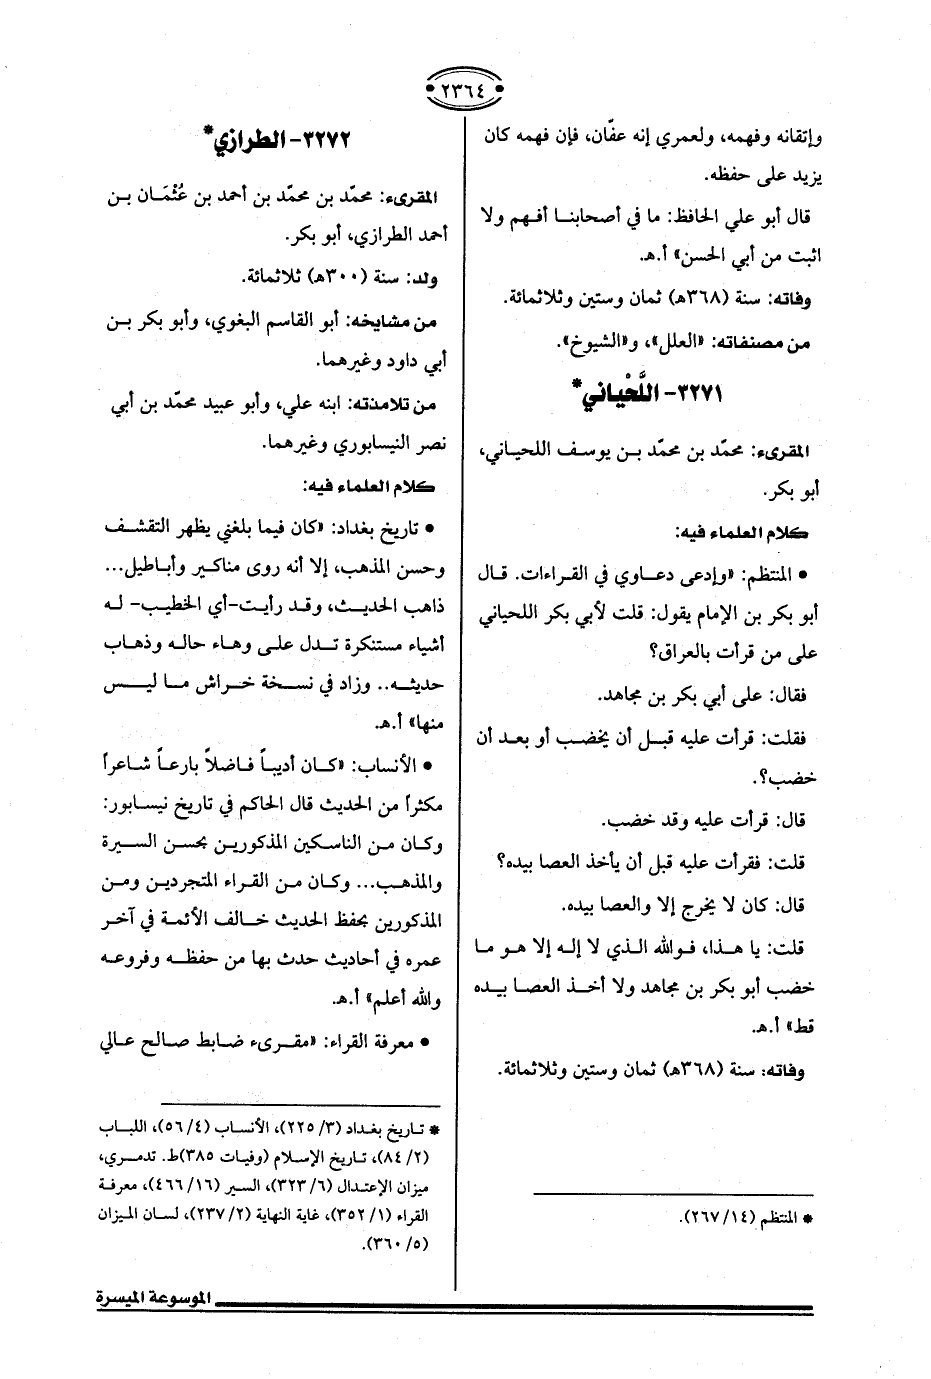 ٢٣٦٤
وإتقانه وفهمه، ولعمري إنه عفّان، فإن فهمه كان
يزيد على حفظه.
قال أبو علي الحافظ: ما في أصحابنا أفهم ولا
اثبت من أبي الحسن» أ.هـ.
وفاته: سنة (٣٦٨هـ) ثمان وستين وثلاثمائة.
من مصنفاته: «العلل»، و«الشيوخ».
٣٢٧١- اللَّحْياني*
المقرىء: محمّد بن محمّد بن يوسف اللحياني،
أبو بكر.
كلام العلماء فيه:
• المنتظم: «وإدعى دعاوي في القراءات. قال
أبو بكر بن الإمام يقول: قلت لأبي بكر اللحياني
على من قرأت بالعراق؟
فقال: على أبي بكر بن مجاهد.
فقلت: قرأت عليه قبل أن يخضب أو بعد أن
خضب؟.
قال: قرأت عليه وقد خضب.
قلت: فقرأت عليه قبل أن يأخذ العصا بيده؟
قال: كان لا يخرج إلا والعصا بيده.
قلت: يا هذا، فوالله الذي لا إله إلا هو ما
خضب أبو بكر بن مجاهد ولا أخذ العصا بيده
قط» أ.هـ.
وفاته: سنة (٣٦٨هـ) ثمان وستين وثلاثمائة.
* المنتظم (١٤/ ٢٦٧).
٣٢٧٢- الطرازي*
المقرىء: محمّد بن محمّد بن أحمد بن عُثْمَان بن
أحمد الطرازي، أبو بكر.
ولد: سنة (٣٠٠هـ) ثلاثمائة.
من مشايخه: أبو القاسم البغوي، وأبو بكر بن
أبي داود وغيرهما.
من تلامذته: ابنه علي، وأبو عبيد محمّد بن أبي
نصر النيسابوري وغيرهما.
كلام العلماء فيه:
• تاريخ بغداد: «كان فيما بلغني يظهر التقشف
وحسن المذهب، إلا أنه روى مناكير وأباطيل...
ذاهب الحديث، وقد رأيت-أي الخطيب- له
أشياء مستنكرة تدل على وهاء حاله وذهاب
حديثه.. وزاد في نسخة خراش ما ليس
منها» أ.هـ.
• الأنساب: «كان أديباً فاضلاً بارعاً شاعراً
مكثراً من الحديث قال الحاكم في تاريخ نيسابور:
وكان من الناسكين المذكورين بحسن السيرة
والمذهب... وكان من القراء المتجردين ومن
المذكورين بحفظ الحديث خالف الأئمة في آخر
عمره في أحاديث حدث بها من حفظه وفروعه
والله أعلم» أ.هـ.
• معرفة القراء: «مقرىء ضابط صالح عالي
* تاريخ بغداد (٣/ ٢٢٥)، الأنساب (٤/ ٥٦)، اللباب
(٢/ ٨٤)، تاريخ الإسلام (وفيات ٣٨٥)ط. تدمري،
ميزان الإعتدال (٦/ ٣٢٣)، السير (١٦/ ٤٦٦)، معرفة
القراء (١/ ٣٥٢)، غاية النهاية (٢/ ٢٣٧)، لسان الميزان
(٥/ ٣٦٠).
الموسوعة الميسرة